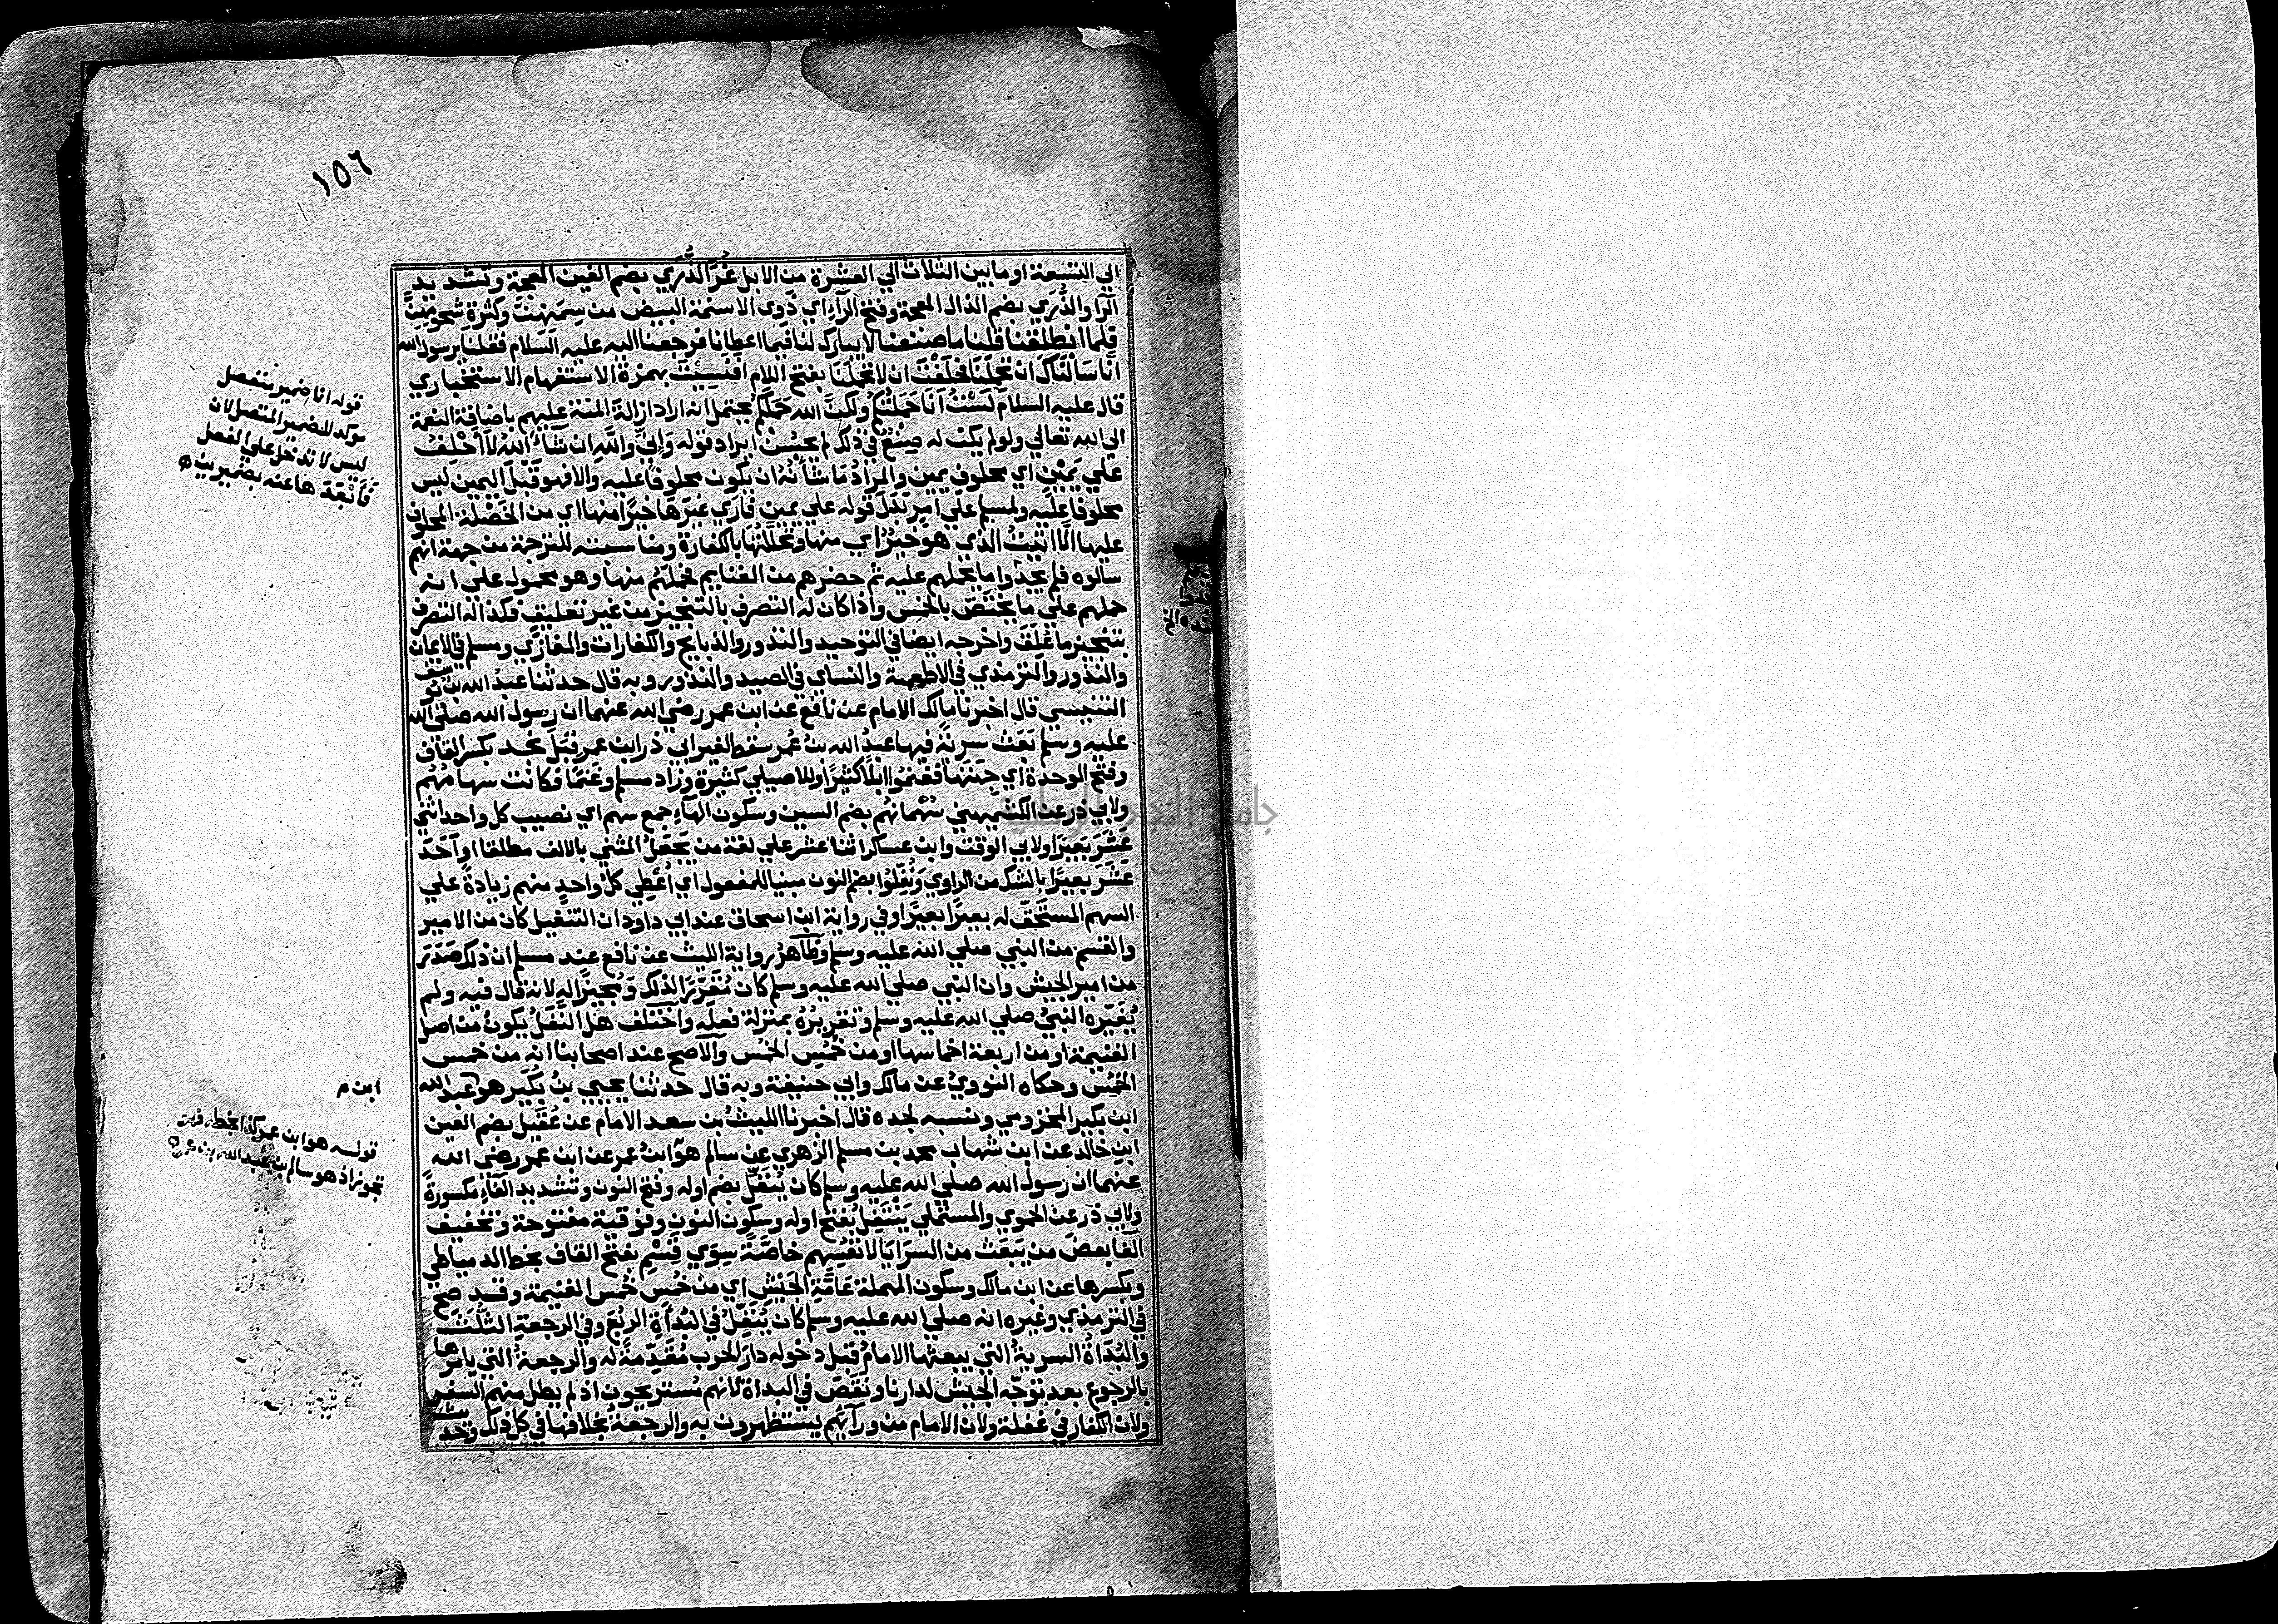 ١٥٦
الي التسعة او ما بين الثلاث الي العشرة من الابل غُرّ الذُّري بضم الغين المعجمة وتشديد
الرّا والذُّرَي بضم الذال المعجمة وفتح الرّاءِ اي ذَوِي الاسنمة البيض من سِمَنِهنَّ وكثرةِ شحومِهنَّ
فلما انطلقنا قلنا ما صنعنا لا يبارك لنا فيما اعطانا فرجعنا اليه عليه السّلام فقلنا يرسول الله
انّا سَالْنَاكَ ان تحمِلَنَا فحَلَفْتَ ان لا تحملَنَا بفتح اللام افَنَسِيْتَ بهمزة الاستفهام الاستخباري
قال عليه السلام لَسْتُ اَنَا حَمَلْتُكُم ولكنَّ الله حَمَلَكُم يحتمل انه اراد ازالةَ المنة عليهم باضافة النعمة
الي الله تعالي ولو لم يكن له صُنْعٌ في ذلك لم يحسُنْ ايراد قوله وَاِنِّي وَاللَّهِ ان شَآءَ اللهُ لاَ اَحْلِفُ
علي يَمْيْنٍ اي محلوفِ يمين والمرادُ مَا شأنُه ان يكون محلوفًا عليه والا فهو قَبْلَ اليمين ليس
محلوفا عليه ولمسلم علي امرٍ بَدَلَ قوله علي يمينٍ فاَرَي غيرَها خَيرًا منها اي من الخَصْلَة المحلوف
عليها الاّ اتيتُ الذي هو خَيْرٌ اي منها وتحلَّلتُها بالكفارة ومناسبته للترجمة من جهة انهم
سالوه فلم يجدوا ما يحملهم عليه ثم حضرهم من الغنايم فحملَهُم منها وهو محمول علي انه
حملهم علي ما يختصّ بالخمس واذا كان له التصرف بالتنجيز من غير تعليقٍ فكذا له التصرف
بتنجيز ما عُلِّقَ واخرجه ايضا في التوحيد والنذور والذبايح والكفارات والمغازي ومسلم في الايمان
والنذور والترمذي في الاطعمة والنساي في الصيد والنذور وبه قال حدثنا عبدُ الله بن يوسف
التنيسي قال اخبرنا مالك الامام عن نافع عن ابن عمر رضي الله عنهما ان رسول الله صلي الله
عليه وسلم بَعَثَ سريّةً فيها عبدُ الله بنُ عُمر سقط لغير ابي ذر ابن عمر قِبَلَ نجد بكسر القاف
وفتح الموحدة اي جِهَتَها فغنموا ابلاً كثيرًا وللاصيلي كثيرة وزاد مسلم وغَنَمًا فكانت سهامهُم
ولابي ذر عن الكشميهني سُهْمانُهم بضم السين وسكون الهاءِ جمع سهم اي نصيب كل واحد اثني
عَشَرَ بَعِيرًا ولابي الوقت وابن عساكر اثنا عشر علي لغة من يَجعَلُ المثني بالالف مطلقا او اَحَدَ
عَشَرَ بعيرًا بالشك من الراوي وَنُفِّلُوا بضم النون مبنيا للمفعول اي اُعْطِي كلّ واحدٍ منهم زيادةً علي
السهم المستَحَقّ له بعيرًا بعيرًا وفي رواية ابن اسحاق عند ابي داود ان التنفيل كان من الامير
والقسم من النبي صلي الله عليه وسلم وظاهرُ رواية الليث عن نافع عند مسلم ان ذلك صَدَرَ
من امير الجيش وان النبي صلي الله عليه وسلم كان مُقَرِّرًا لذلك وَمُجِيزًا له لانه قال فيه ولم
يُغَيِّرْه النبيُّ صلي الله عليه وسلم وتقريرُهُ بمنزلة فعلِه واختلف هل النفَلُ يكونُ من اصل
الغنيمة او من اربعة اخماسها او من خُمُسِ الخمُس والاصح عند اصحابنا انه من خمس
الخمُس وحكاه النوويُّ عن مالك وابي حنيفة وبه قال حدثنا يحيي بنُ بُكَير هو عبد الله
ابن بكير المخزومي ونسبه لجده قال اخبرنا الليثُ بن سعد الامام عن عُقَيل بضم العين
ابن خالد عن ابن شهاب محمد بن مسلم الزهري عن سالم هو ابنُ عمر عن ابن عمر رضي الله
عنهما ان رسول الله صلي الله عليه وسلم كان يُنَفِّلُ بضم اوله وفتح النون وتشديد الفاءِ مكسورةً
ولابي ذر عن الحموي والمستملي يَنْتَفِلُ بفتح اوله وسكون النون وفوقية مفتوحة وتخفيف
الفا بعضَ من يَبعَث من السرَايَا لانفُسِهم خاصَّةً سِوَي قَسْمِ بفتح القاف بخط الدمياطي
وبكسرها عن ابن مالك وسكون المهملة عَامَّةِ الجَيْش اي من خُمُس خُمُس الغنيمة وقد صح
في الترمذي وغيره انه صلي الله عليه وسلم كان يُنَفِّلُ في البُدأَةِ الربُعَ وفي الرجعةِ الثُّلُثَ
والبُدْاةُ السريةُ التي يبعثها الامامُ قبل دخوله دارَ الحرب مُقَدِّمَةً له والرجعةُ التي يامرها
بالرجوع بعد توَجُّه الجيش لدارنا ونقص في البداة لانهم مُستريحون اذ لم يطل منهم السفر
ولان الكفار في غفلة ولان الامام من ورآئهم يستظهرون به والرجعة بخلافها في كل ذلك
قوله انا ضمير منفصل
موكد للضمير المتصل لان
ليس لا تدخل علي الفعل
ابن م
قوله هو ابن عمر كذا بخطه فيه
تجوز اذ هو سالم بن عبد الله بن عمر
جامعة النجاح الوطنية